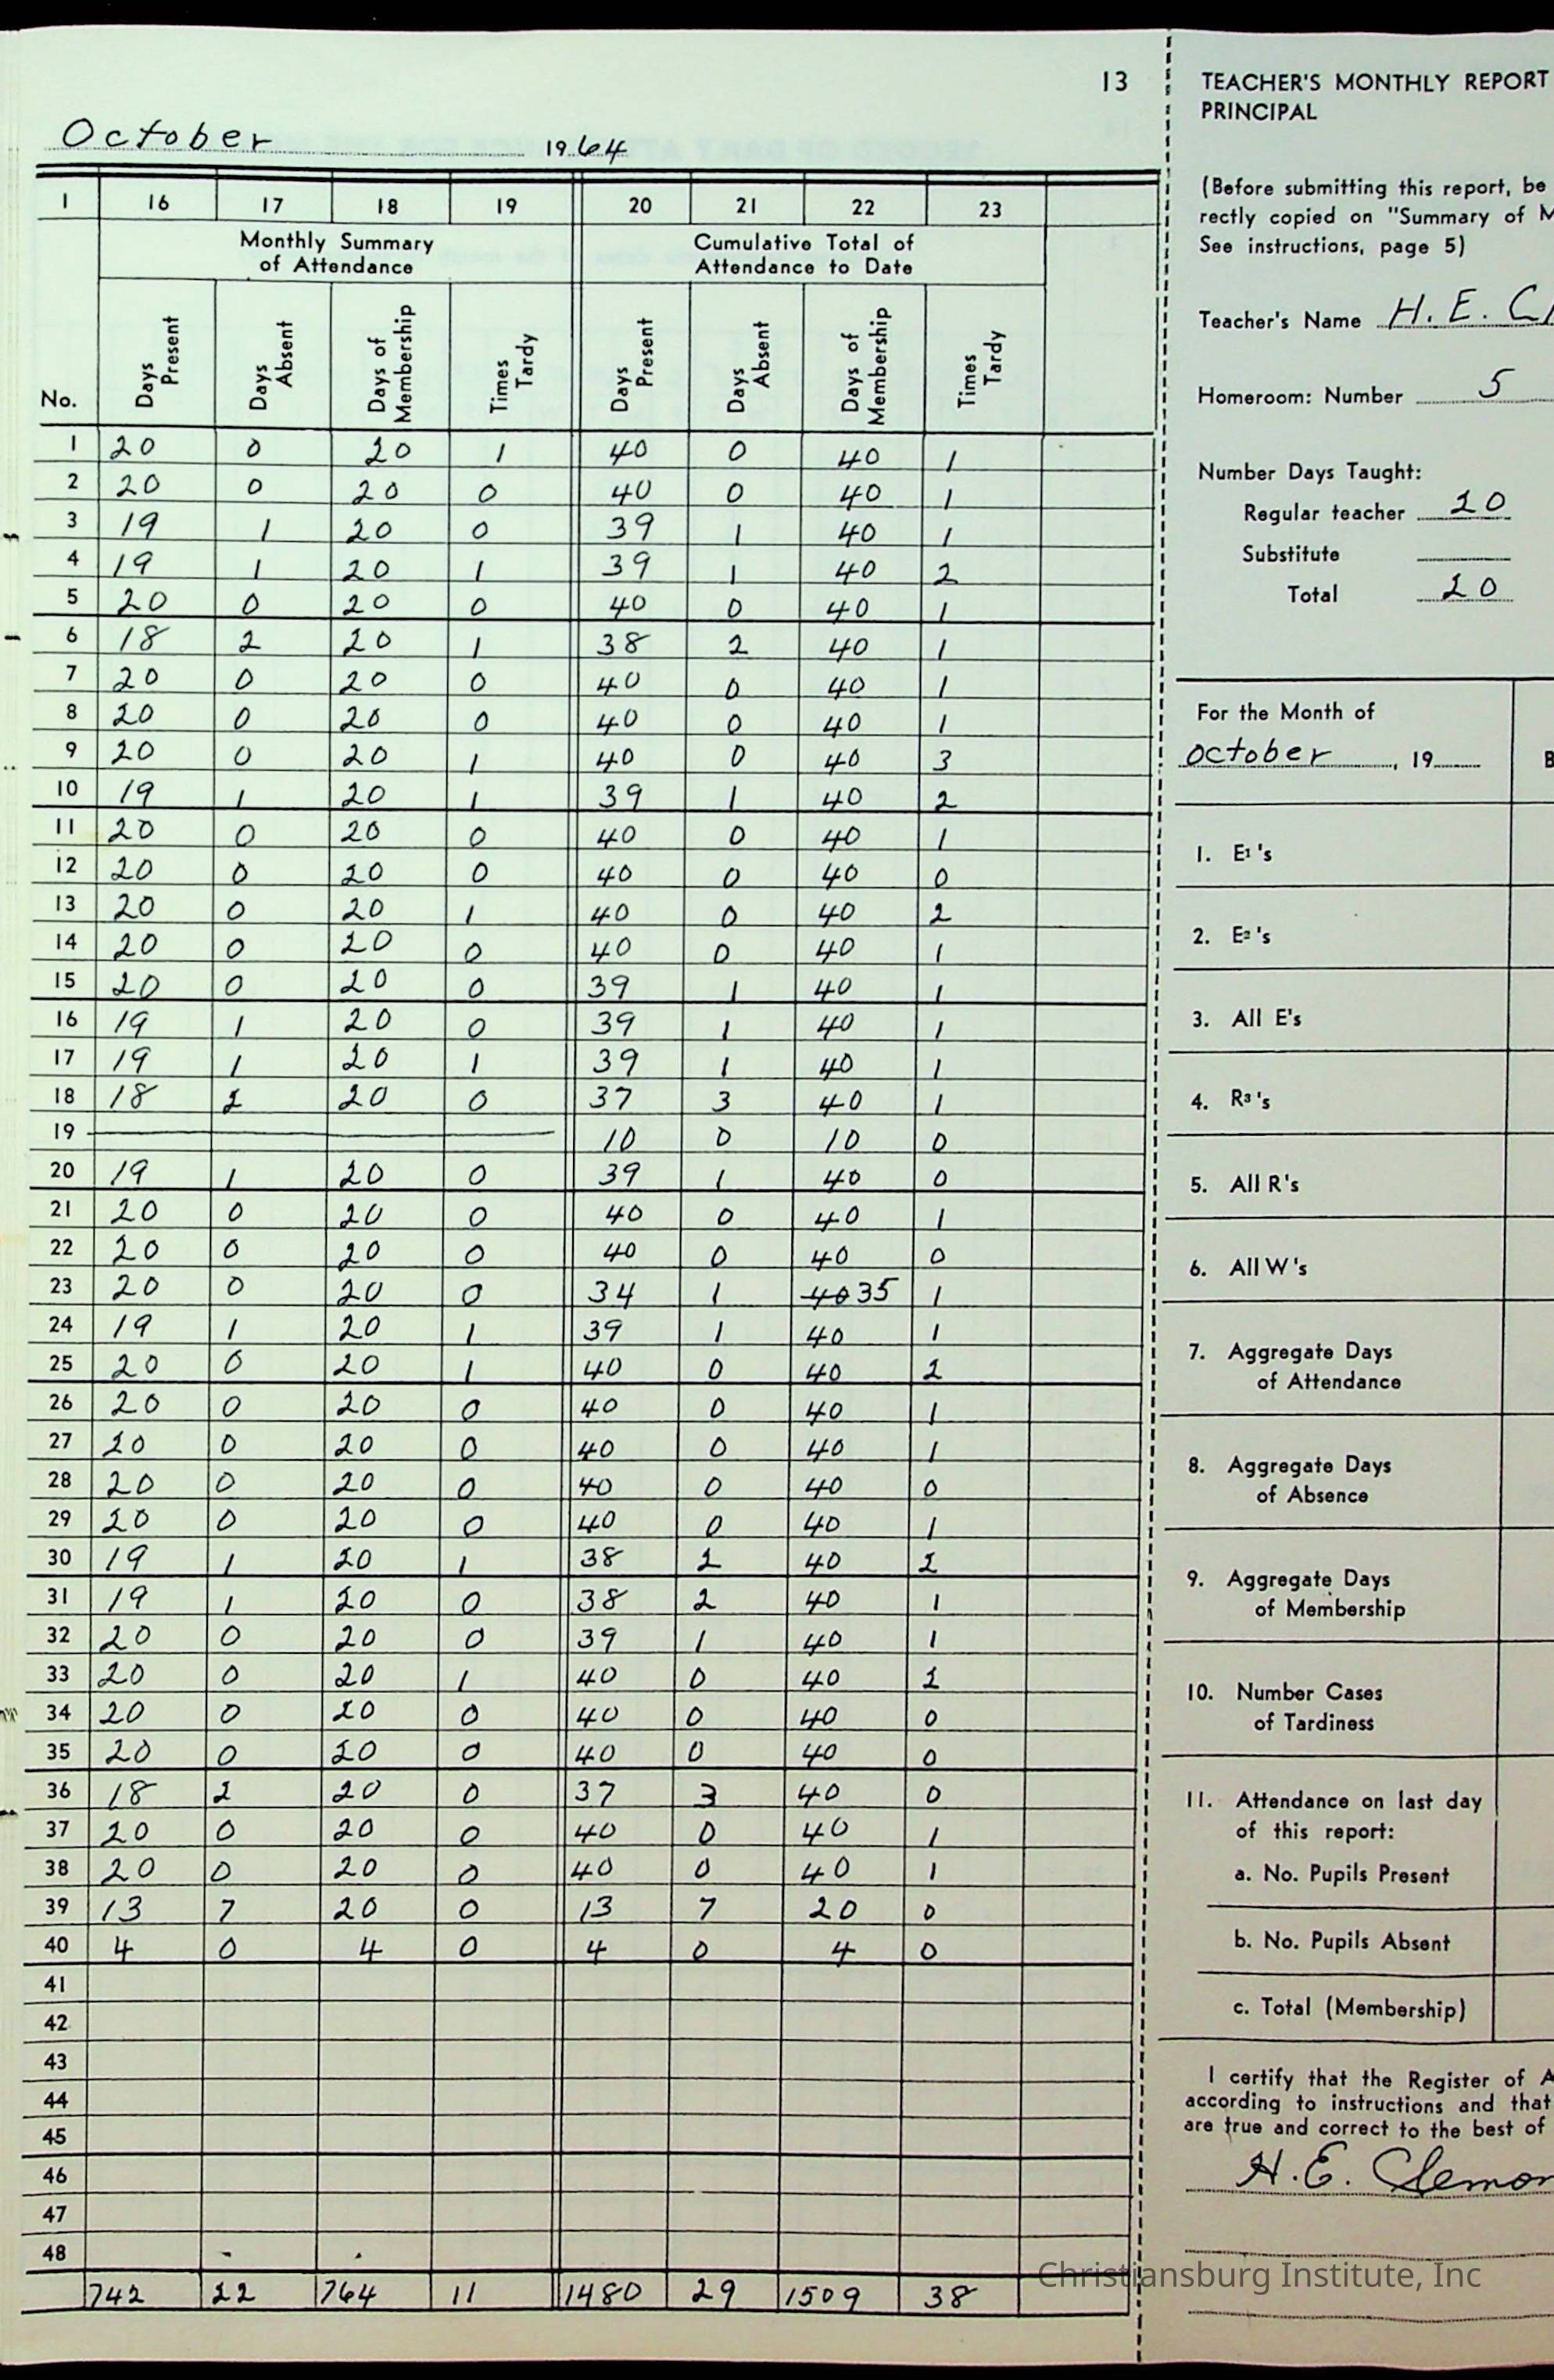 13
October 1964
1 16 17 18 19 20 21 22 23
Monthly Summary of Attendance Cumulative Total of Attendance to Date
No. Days Present Days Absent Days of Membership Times Tardy Days Present Days Absent Days of Membership Times Tardy
1 20 0 20 1 40 0 40 1
2 20 0 20 0 40 0 40 1
3 19 1 20 0 39 1 40 1
4 19 1 20 1 39 1 40 2
5 20 0 20 0 40 0 40 1
6 18 2 20 1 38 2 40 1
7 20 0 20 0 40 0 40 1
8 20 0 20 0 40 0 40 1
9 20 0 20 1 40 0 40 3
10 19 1 20 1 39 1 40 2
11 20 0 20 0 40 0 40 1
12 20 0 20 0 40 0 40 0
13 20 0 20 1 40 0 40 2
14 20 0 20 0 40 0 40 1
15 20 0 20 0 39 1 40 1
16 19 1 20 0 39 1 40 1
17 19 1 20 1 39 1 40 1
18 18 2 20 0 37 3 40 1
19 10 0 10 0
20 19 1 20 0 39 1 40 0
21 20 0 20 0 40 0 40 1
22 20 0 20 0 40 0 40 0
23 20 0 20 0 34 1 40 35 1
24 19 1 20 1 39 1 40 1
25 20 0 20 1 40 0 40 2
26 20 0 20 0 40 0 40 1
27 20 0 20 0 40 0 40 1
28 20 0 20 0 40 0 40 0
29 20 0 20 0 40 0 40 1
30 19 1 20 1 38 2 40 2
31 19 1 20 0 38 2 40 1
32 20 0 20 0 39 1 40 1
33 20 0 20 1 40 0 40 2
34 20 0 20 0 40 0 40 0
35 20 0 20 0 40 0 40 0
36 18 2 20 0 37 3 40 0
37 20 0 20 0 40 0 40 1
38 20 0 20 0 40 0 40 1
39 13 7 20 0 13 7 20 0
40 4 0 4 0 4 0 4 0
41
42
43
44
45
46
47
48
742 22 764 11 1480 29 1509 38
TEACHER'S MONTHLY REPORT
PRINCIPAL
(Before submitting this report, be
rectly copied on "Summary of M
See instructions, page 5)
Teacher's Name H. E. Cl
Homeroom: Number 5
Number Days Taught:
Regular teacher 20
Substitute
Total 20
For the Month of
October, 19 B
1. E1's
2. E2's
3. All E's
4. R3's
5. All R's
6. All W's
7. Aggregate Days
of Attendance
8. Aggregate Days
of Absence
9. Aggregate Days
of Membership
10. Number Cases
of Tardiness
11. Attendance on last day
of this report:
a. No. Pupils Present
b. No. Pupils Absent
c. Total (Membership)
I certify that the Register of A
according to instructions and that
are true and correct to the best of
H. E. Clemon
Christiansburg Institute, Inc